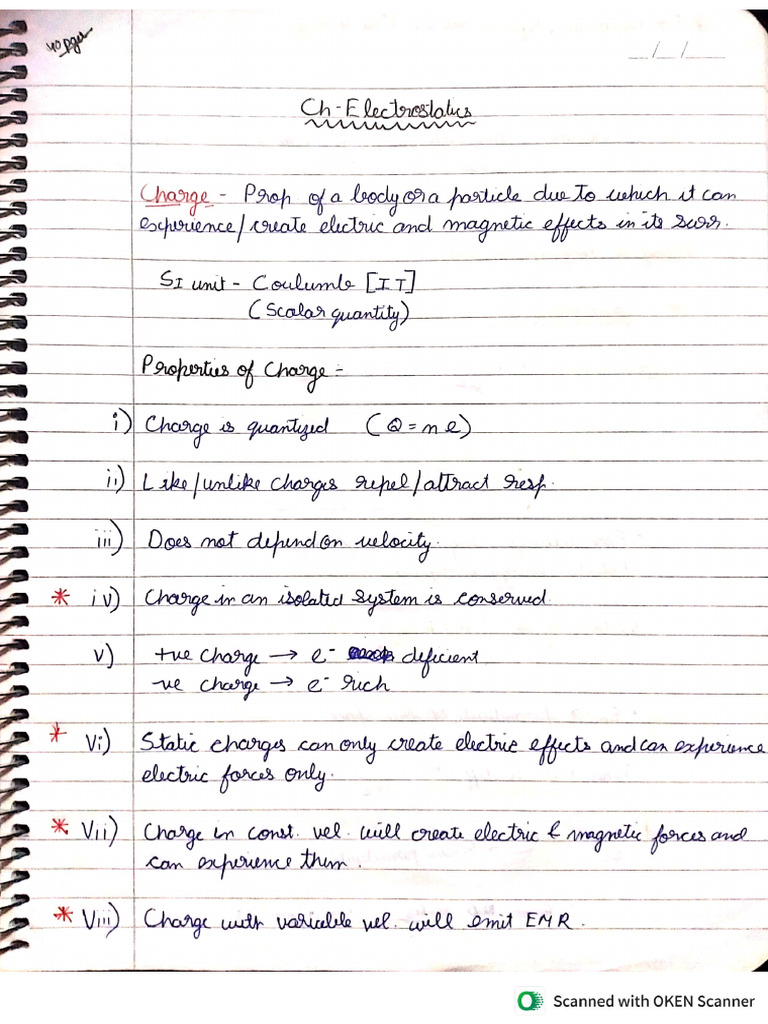 40 pges
__/__/____
Ch-Electrostatics
Charge - Prop of a body or a particle due to which it can
experience/create electric and magnetic effects in its surr.
SI unit - Coulumb [IT]
(Scalar quantity)
Properties of Charge -
i) Charge is quantized (Q = ne)
ii) Like/unlike charges repel/attract resp.
iii) Does not depend on velocity.
* iv) Charge in an isolated system is conserved.
v) +ve charge → e⁻ deficient
-ve charge → e⁻ rich
* Vi) Static charges can only create electric effects and can experience
electric forces only.
* Vii) Charge in const. vel. will create electric & magnetic forces and
can experience them.
* Viii) Charge with variable vel. will emit EMR.
Scanned with OKEN Scanner